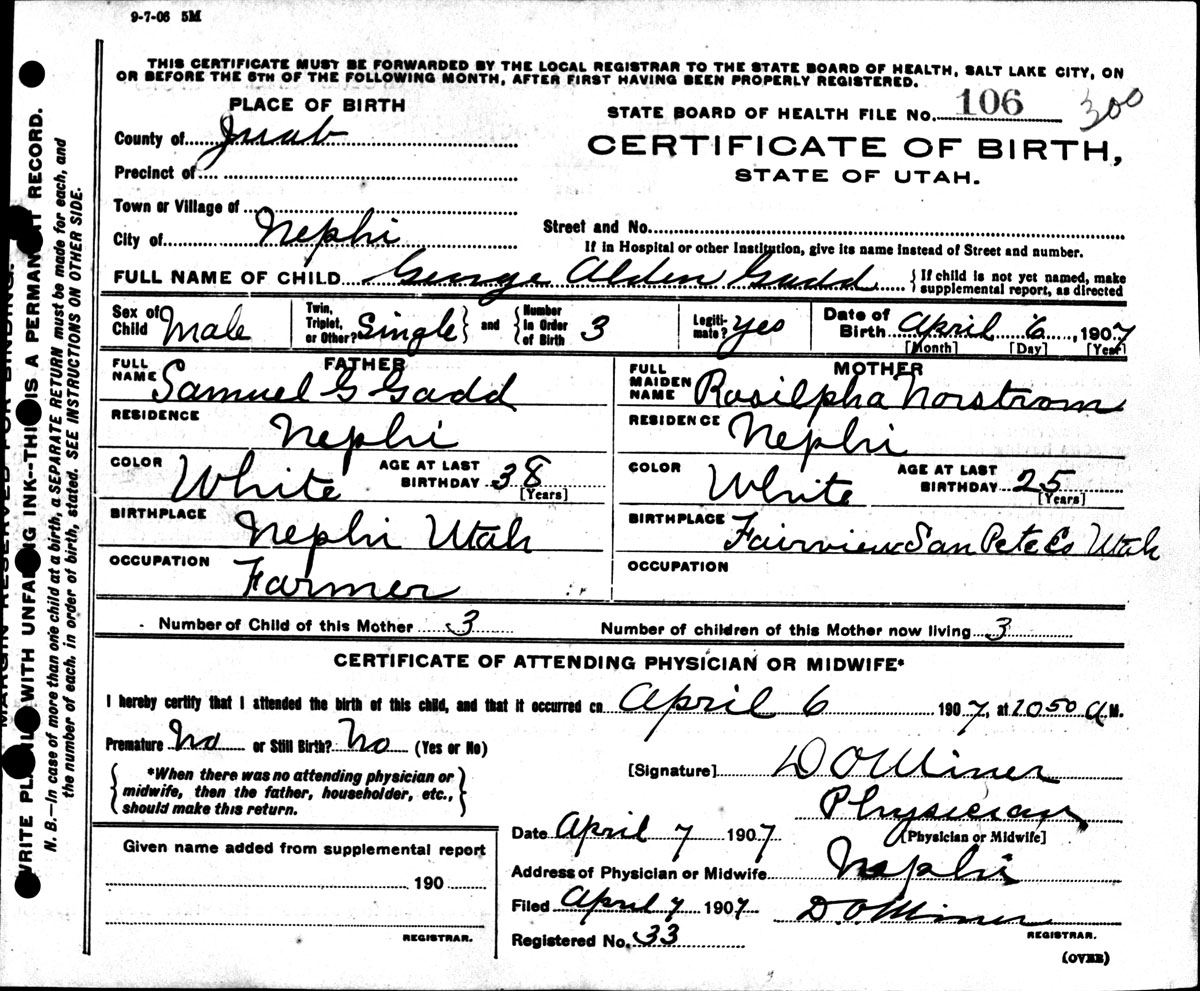 9-7-06 5M
THIS CERTIFICATE MUST BE FORWARDED BY THE LOCAL REGISTRAR TO THE STATE BOARD OF HEALTH, SALT LAKE CITY, ON
OR BEFORE THE 5TH OF THE FOLLOWING MONTH, AFTER FIRST HAVING BEEN PROPERLY REGISTERED.
PLACE OF BIRTH
STATE BOARD OF HEALTH FILE No. 106 300
County of Juab
CERTIFICATE OF BIRTH,
Precinct of
STATE OF UTAH.
Town or Village of
Street and No.
City of Nephi
If in Hospital or other Institution, give its name instead of Street and number.
FULL NAME OF CHILD George Alden Gadd {If child is not yet named, make supplemental report, as directed
Sex of Child Male Twin, Triplet, or Other? Single} and {Number in Order of Birth 3 Legitimate? Yes Date of Birth April 6, 1907
[Month] [Day] [Year]
FATHER
FULL NAME Samuel G Gadd
RESIDENCE
Nephi
COLOR White AGE AT LAST BIRTHDAY 38
[Years]
BIRTHPLACE
Nephi Utah
OCCUPATION
Farmer
MOTHER
FULL MAIDEN NAME Rosilpha Norstrom
RESIDENCE
Nephi
COLOR White AGE AT LAST BIRTHDAY 25
[Years]
BIRTHPLACE
Fairview San Pete Co Utah
OCCUPATION
Number of Child of this Mother 3 Number of children of this Mother now living 3
CERTIFICATE OF ATTENDING PHYSICIAN OR MIDWIFE*
I hereby certify that I attended the birth of this child, and that it occurred on April 6 1907, at 1050 A.M.
Premature No or Still Birth? No (Yes or No)
{*When there was no attending physician or
midwife, then the father, householder, etc.,
should make this return.}
[Signature] D O Miner
Physician
[Physician or Midwife]
Date April 7 1907
Address of Physician or Midwife Nephi
Filed April 7 1907 D. O. Miner
REGISTRAR.
Registered No. 33
(OVER)
Given name added from supplemental report
190
REGISTRAR.
MARGIN RESERVED FOR BINDING.
WRITE PLAINLY WITH UNFADING INK--THIS IS A PERMANENT RECORD.
N. B.—In case of more than one child at a birth, a SEPARATE RETURN must be made for each, and
the number of each, in order of birth, stated. SEE INSTRUCTIONS ON OTHER SIDE.